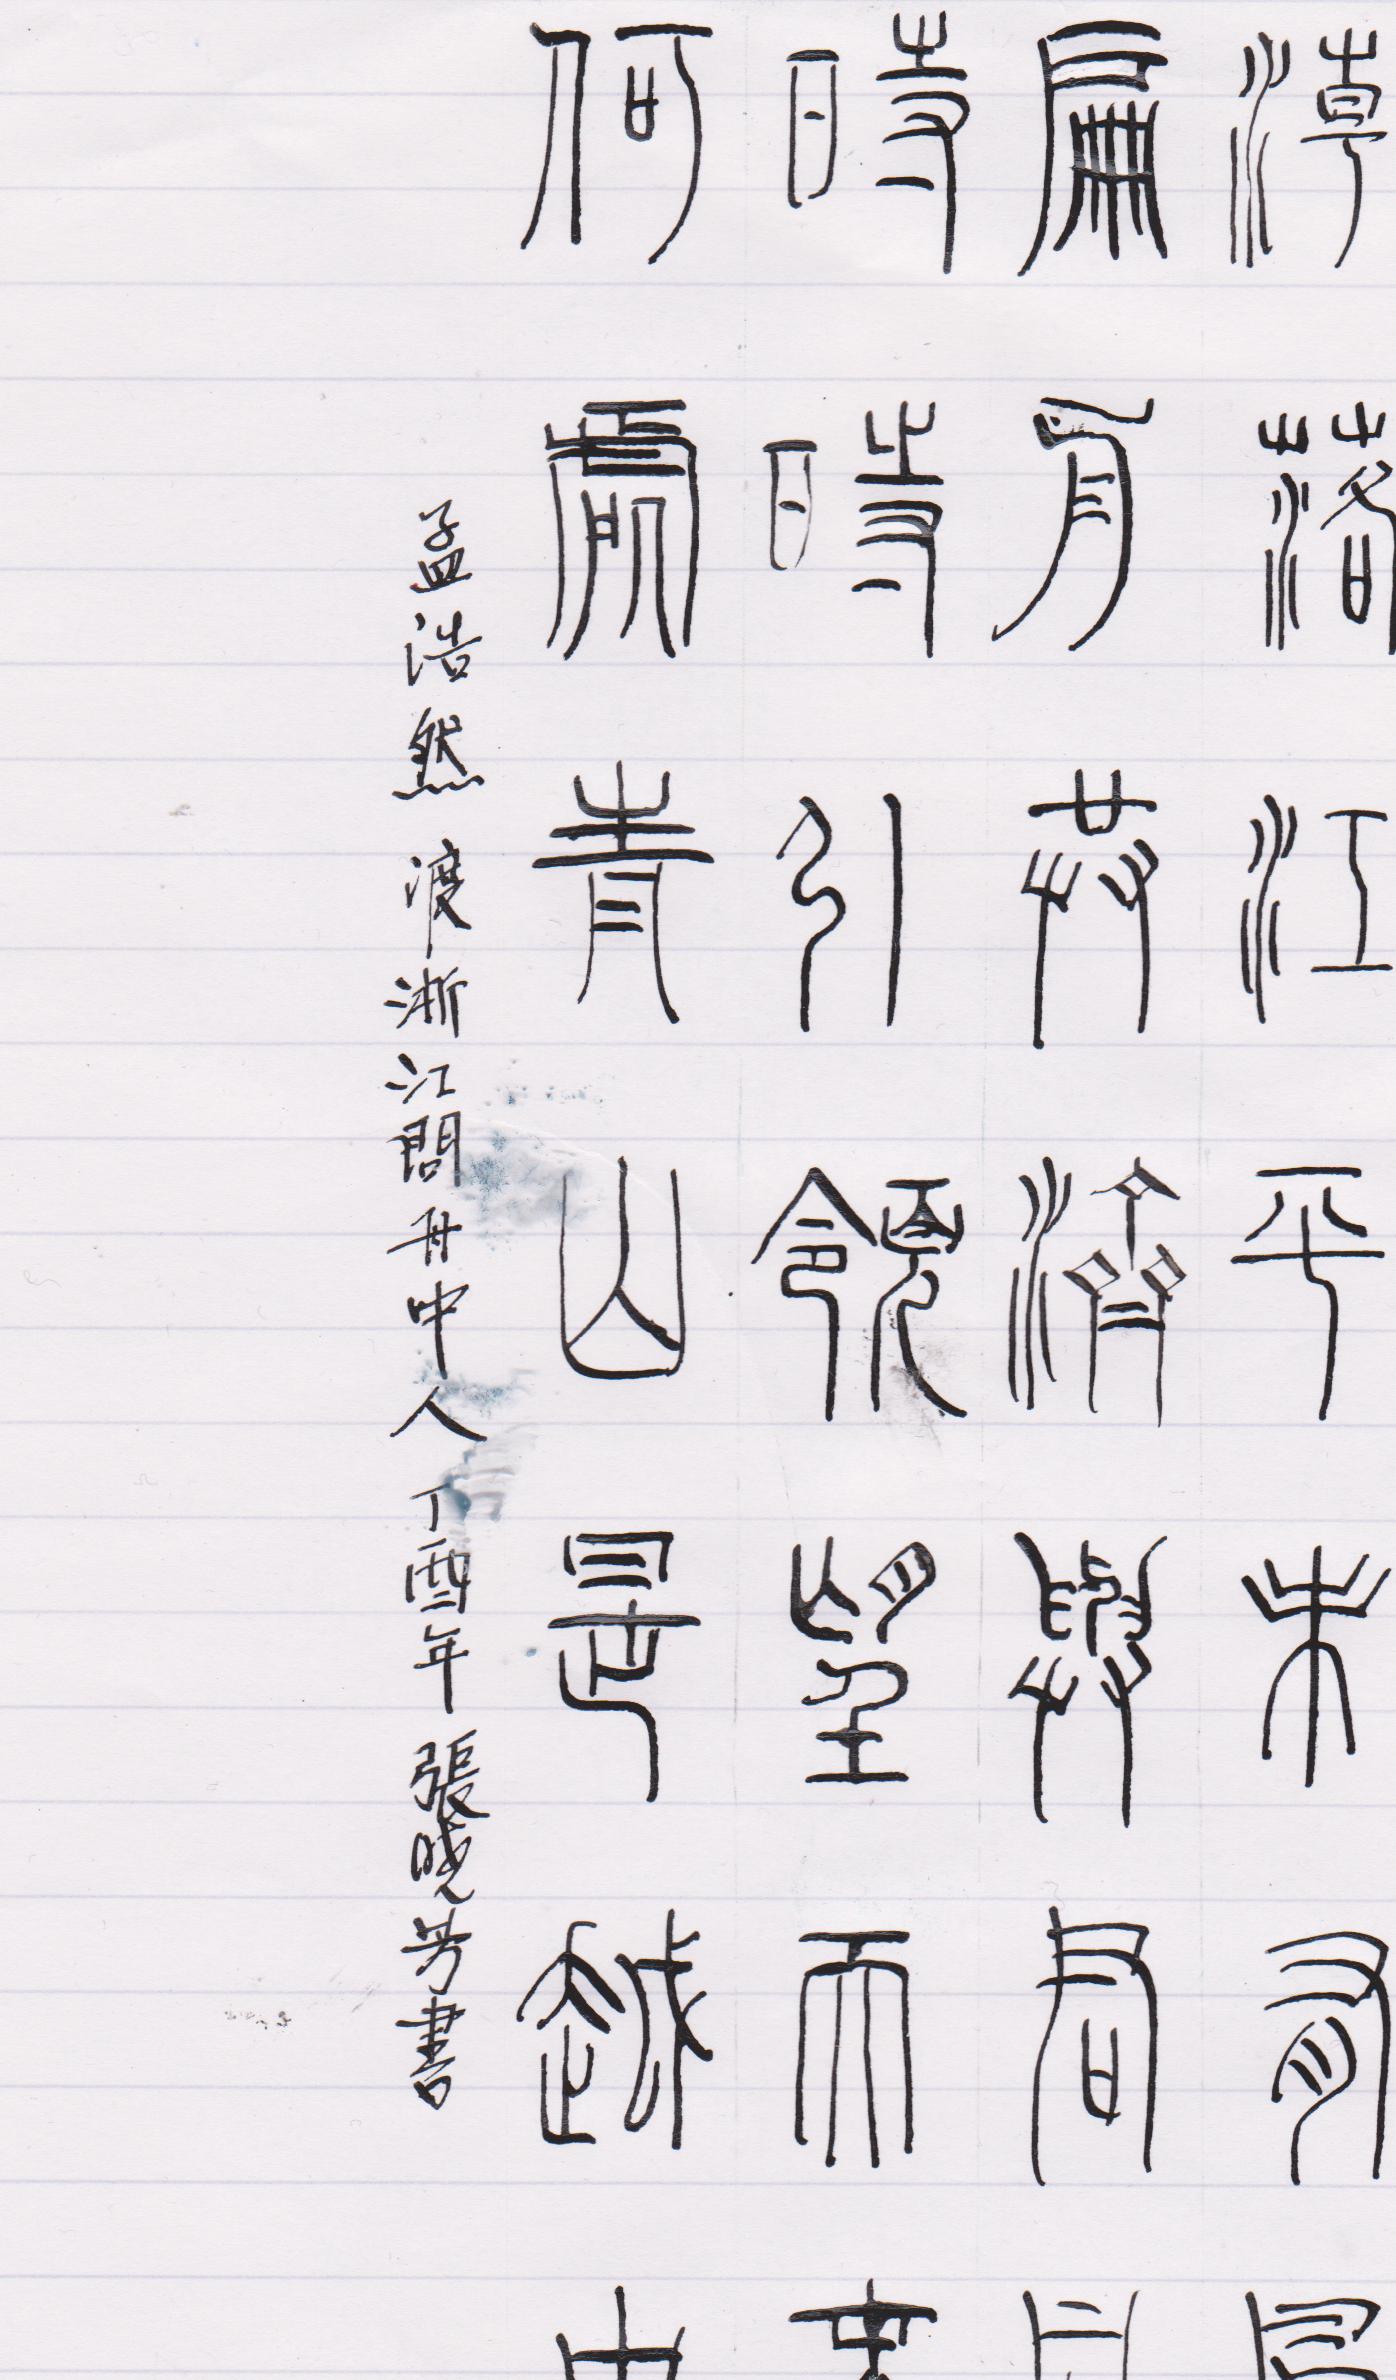 潮落江平未有風
扁舟共濟與君同
時時引領望天末
何處青山是越中
孟浩然 渡浙江問舟中人 丁酉年 張曉芳書